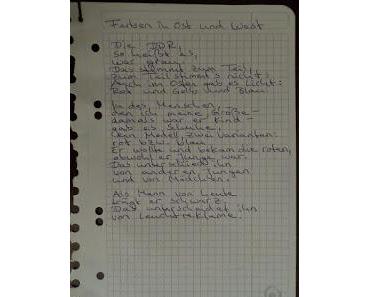 Farben in Ost und West
Die DDR,
so heißt es,
war grau.
Das stimmt zum Teil,
zum Teil stimmt's nicht:
Auch im Osten gab es Licht:
Rot und Gelb und Blau.
In des Menschen,
den ich meine, Größe -
damals war er Kind -
gab es Schuhe,
kein Modell, zwei Varianten:
rot bzw. blau
Er wollte und bekam die roten,
obwohl er Junge war.
Das unterschied ihn
von anderen Jungen
und von Mädchen.
Als Mann von heute
trägt er schwarz.
Das unterscheidet ihn
von Leuchtreklame.